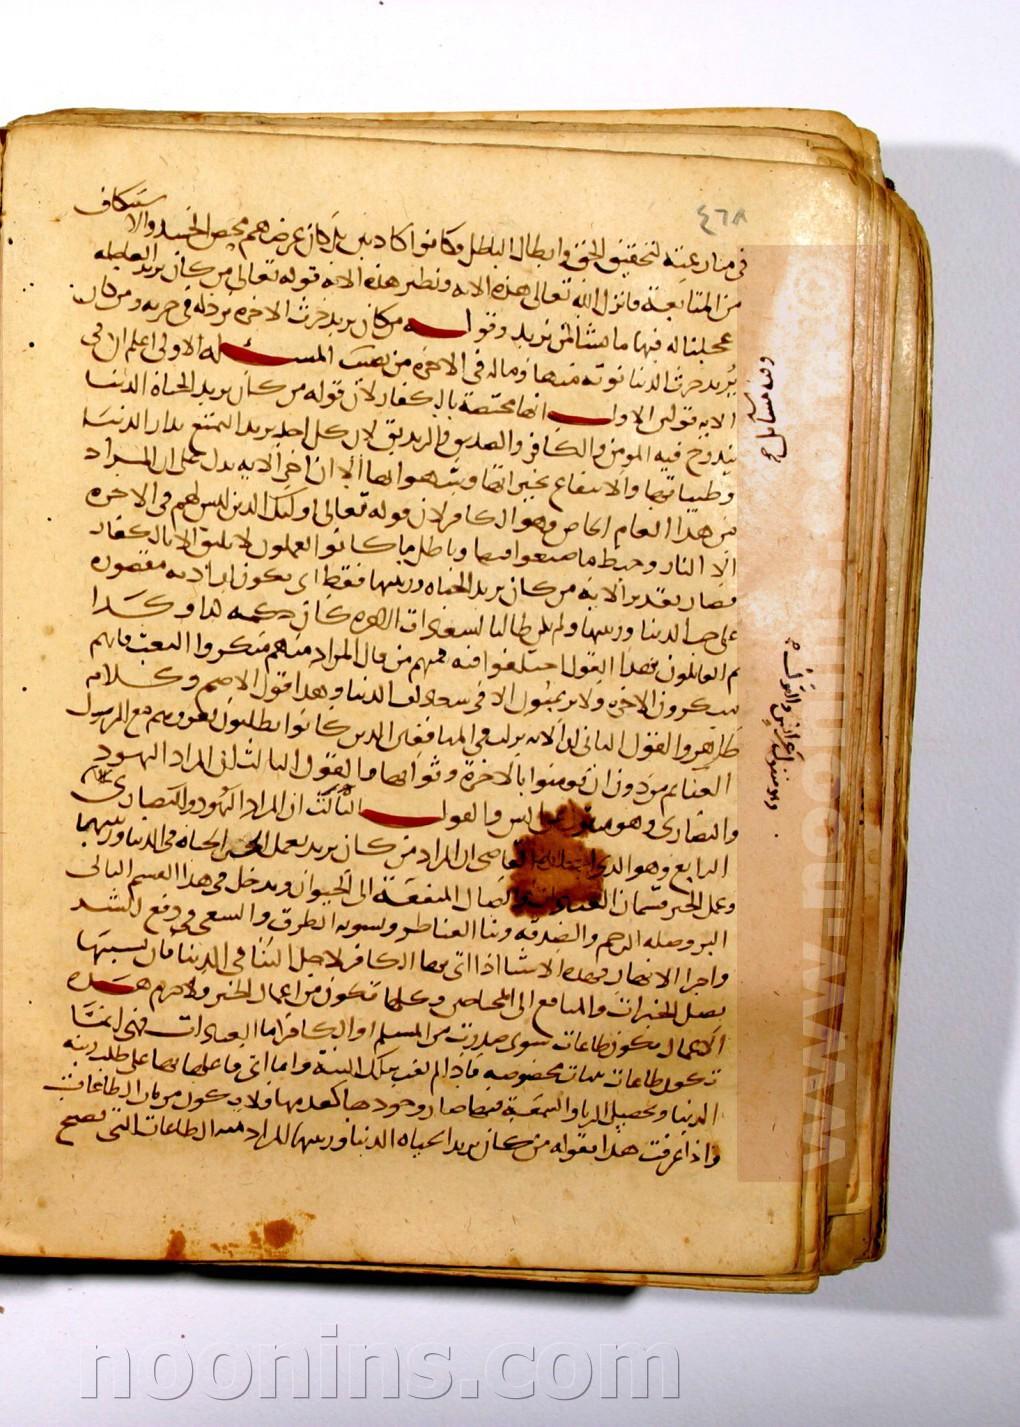 ٤٦٨
في منازعته لتحقيق الحق وابطال الباطل وكانوا كاذبين بل كان غرضهم محض الحسد والاستنكاف
من المتابعة فانزل الله تعالى هذه الاية ونظير هذه الاية قوله تعالى من كان يريد العاجلة
عجلنا له فيها ما نشا لمن نريد وقوله من كان يريد حرث الاخرة نزد له في حرثه ومن كان
يريد حرث الدنيا نوته منها وما له في الاخرة من نصيب المسئله الاولى اعلم ان في
الاية قولين الاول انها مختصة بالكفار لان قوله من كان يريد الحياة الدنيا
يندرج فيه المومن والكافر والصديق والزنديق لان كل احد يريد التمتع بدار الدنيا
وطيباتها والانتفاع بخيراتها وشهواتها الا ان اخر الاية يدل على ان المراد
من هذا العام الخاص وهو الكافر لان قوله تعالى اوليك الذين ليس لهم في الاخرة
الا النار وحبط ما صنعوا فيها وباطل ما كانوا يعملون لا يليق الا بالكفار
فصار تقدير الاية من كان يريد الحياة وزينتها فقط اى تكون ارادته مقصورة
على حب الدنيا وزينتها ولم يكن طالبا لسعادات الاخرة كان حكمه كذا وكذا
ثم القايلون بهذا القول اختلفوا فيه فمنهم من قال المراد منهم منكروا البعث فانهم
ينكرون الاخرة ولا يرغبون الا في سعادات الدنيا وهذا قول الاصم وكلامه
ظاهر والقول الثاني ان الاية نزلت في المنافقين الذين كانوا يطلبون بغزوهم مع الرسول
الغنايم من دون ان يومنوا بالاخرة وثوابها والقول الثالث ان المراد اليهود
والنصارى وهو منقول عن انس والقول الثالث ان المراد اليهود والنصارى
الرابع وهو الذي القاضي ان المراد من كان يريد بعمل الخير الحياة في الدنيا وزينتها
وعمل الخير قسمان العبادات وايصال المنفعة الى الحيوان ويدخل في هذا القسم الثاني
البر وصلة الرحم والصدقة وبنا القناطر وتسوية الطرق والسعي في دفع
واجرا الانهار فهذه الاشيا اذا اتى بها الكافر لاجل الثنا في الدنيا فان بسببها
يصل الخيرات والمنافع الى المحتاجين وكلها تكون من اعمال الخير ولا جرم هذه
الاعمال تكون طاعات سوى صدرت من المسلم او الكافر اما العبادات فهي انما
تكون طاعات بنيات مخصوصة فاذا لم بتلك النية وانما اتى فاعلها بها على طلب زينة
الدنيا وتحصيل الريا والسمعة فيها صار وجودها كعدمها فلا تكون من باب الطاعات
واذا عرفت هذا فقوله من كان يريد الحياة الدنيا وزينتها المراد منه الطاعات التي تصح
وفيه مسايل
www.noonins.com
noonins.com